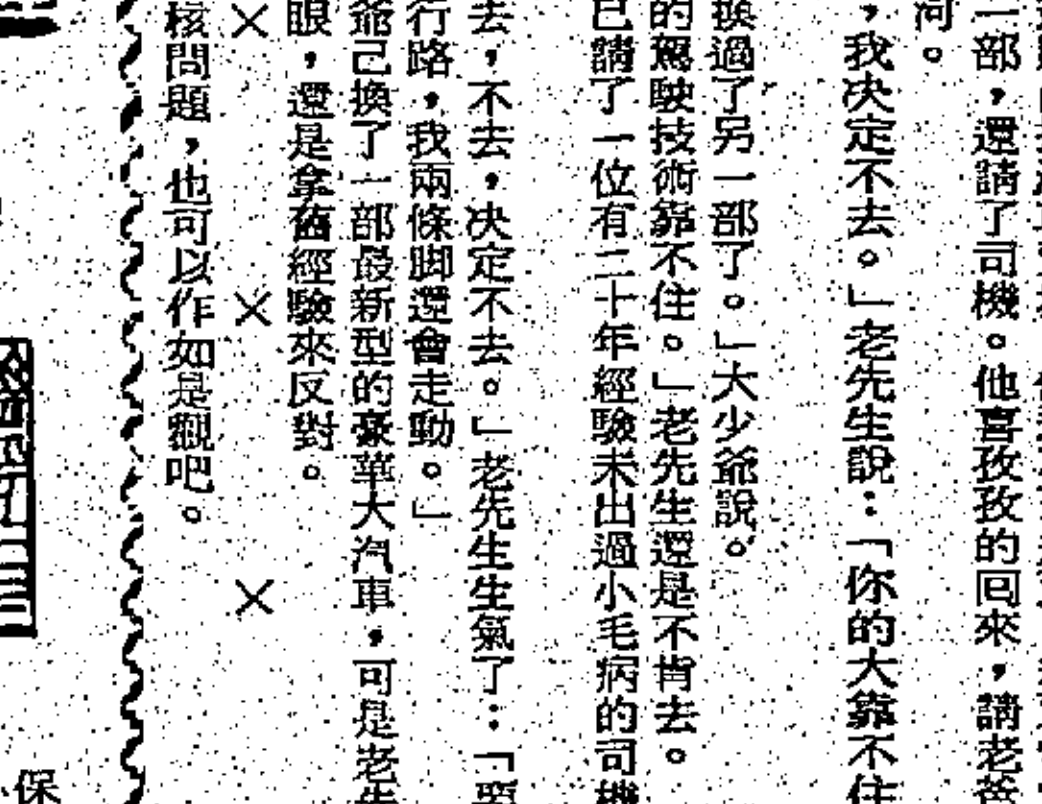 一部，還請了司機。他喜孜孜的回來，請老爺
河。
，我決定不去。」老先生說：「你的大靠不住
換過了另一部了。」大少爺說。
的駕駛技術靠不住。」老先生還是不肯去。
已請了一位有二十年經驗未出過小毛病的司機
去，不去，決定不去。」老先生生氣了：「要
行路，我兩條脚還會走動。」
爺已換了一部最新型的豪華大汽車，可是老先
眼，還是拿舊經驗來反對。
×　×　×
核問題，也可以作如是觀吧。
保